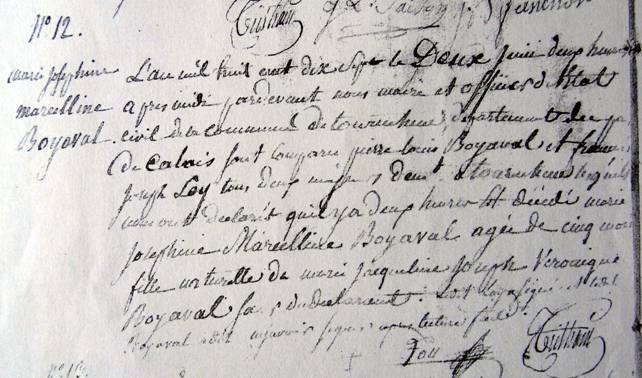 N° 12.
marie josephine
marcelline
Boyaval.
L'an mil huit cent dix sept le Deux juin deux heures
apres midi pardevant nous maire et officier de l'etat
civil de la commune de tournehem, departement du pas
de Calais sont comparu pierre louis Boyaval et
joseph Loy tous deux demt a tournehem lesquels
nous ont declarés qu'il y a deux heures est décédé marie
josephine Marcelline Boyaval agée de cinq mois
fille naturelle de marie jacqueline Joseph Veronique
Boyaval du declarant. Loy a signé
Boyaval a dit signer apres lecture faite